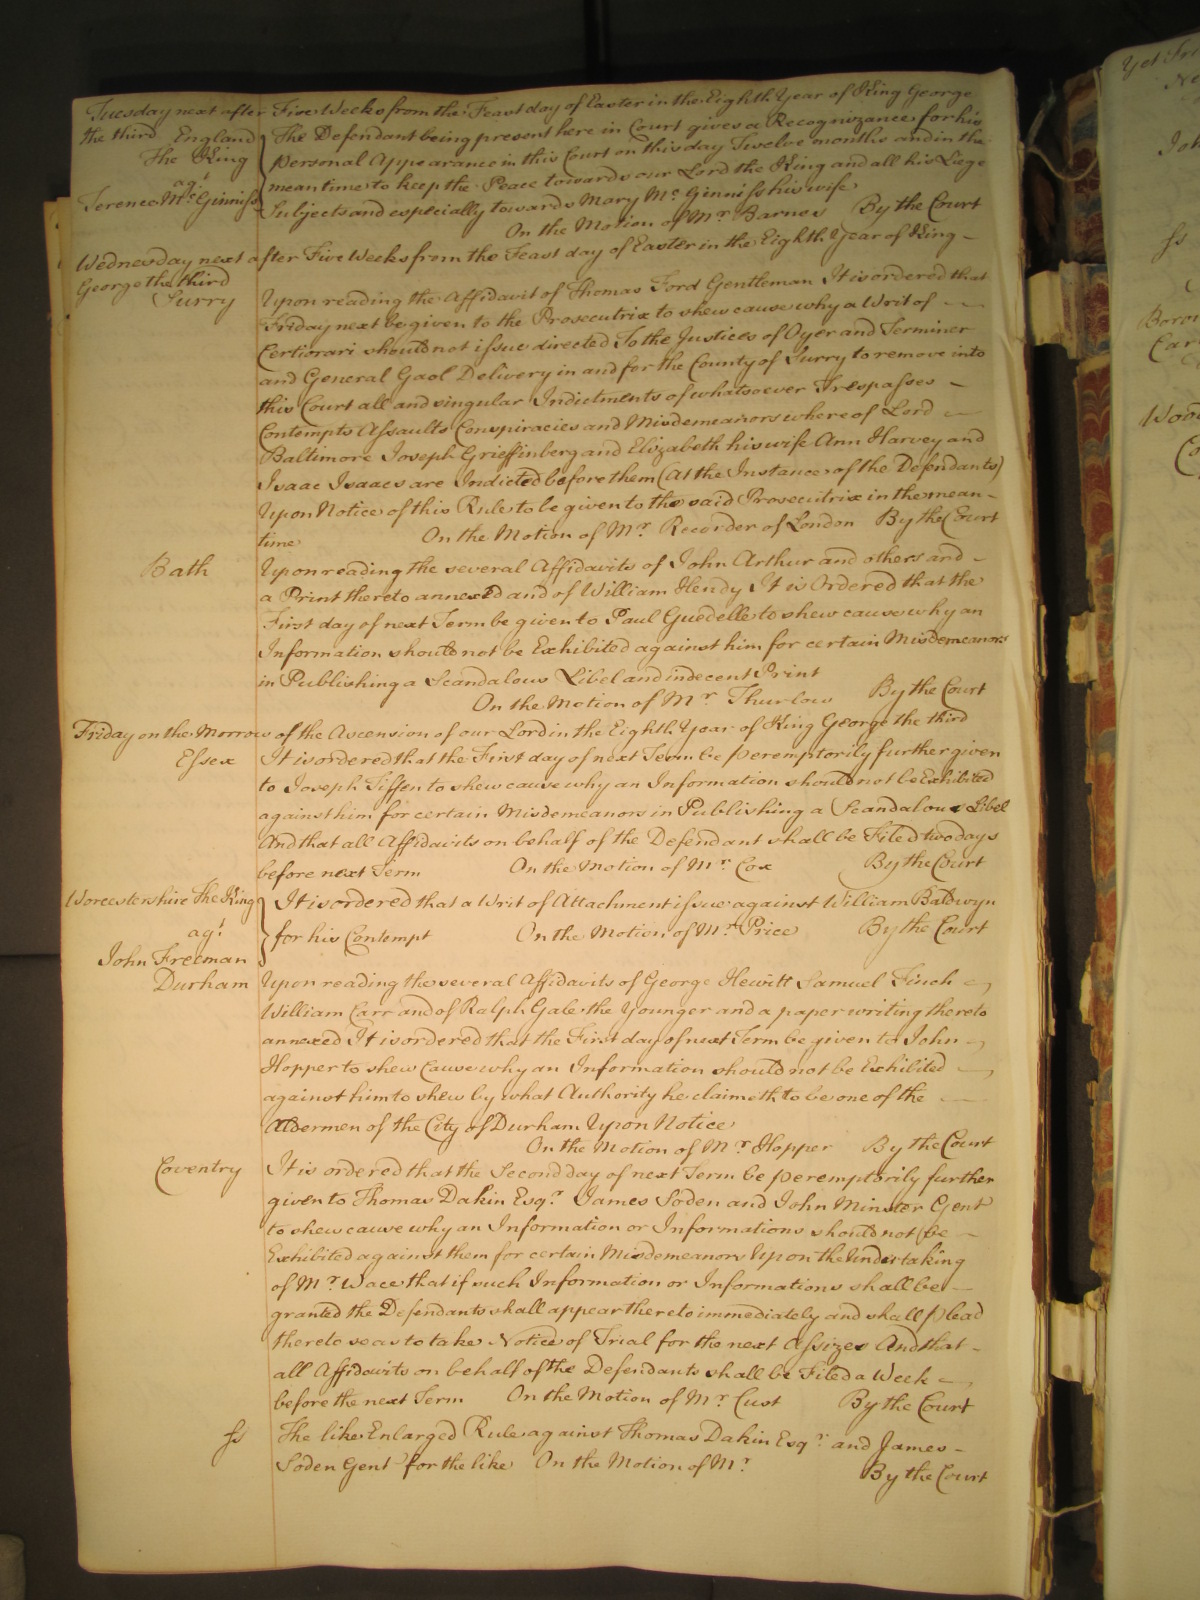 Tuesday next after Five Weeks from the Feast day of Easter in the Eighth Year of King George
the third England
The King
agt
Terence Mc Ginniss
The Defendant being present here in Court gives a Recognizance for his
personal Appearance in this Court on this day Twelve months and in the
mean time to keep the Peace towards our Lord the King and all his Liege
Subjects and especially towards Mary Mc Ginniss his wife
On the Motion of Mr Barnes By the Court
Wednesday next after Five Weeks from the Feast day of Easter in the Eighth Year of King
George the third
Surry
Upon reading the Affidavit of Thomas Ford Gentleman It is ordered that
Friday next be given to the Prosecutrix to shew cause why a Writ of
Certiorari should not issue directed To the Justices of Oyer and Terminer
and General Gaol Delivery in and for the County of Surry to remove into
this Court all and singular Indictments of whatsoever Trespasses
Contempts Assaults Conspiracies and Misdemeanors whereof Lord
Baltimore Joseph Grieffinberg and Elizabeth his wife Ann Harvey and
Isaac Isaacs are Indicted before them (At the Instance of the Defendants)
Upon Notice of this Rule to be given to the said Prosecutrix in the mean
time On the Motion of Mr Recorder of London By the Court
Bath
Upon reading the several Affidavits of John Arthur and others and
a Print thereto annexed and of William Hendy It is Ordered that the
First day of next Term be given to Paul Guedelle to shew cause why an
Information should not be Exhibited against him for certain Misdemeanors
in Publishing a Scandalous Libel and indecent Print
On the Motion of Mr Thurlow By the Court
Friday on the Morrow of the Ascension of our Lord in the Eighth Year of King George the third
Essex
It is ordered that the First day of next Term be peremptorily further given
to Joseph Tiffen to shew cause why an Information should not be Exhibited
against him for certain Misdemeanors in Publishing a Scandalous Libel
And that all Affidavits on behalf of the Defendant shall be Filed two days
before next Term On the Motion of Mr Cox By the Court
Worcestershire The King
agt
John Freeman
It is ordered that a Writ of Attachment issue against William Baldwyn
for his Contempt On the Motion of Mr Price By the Court
Durham
Upon reading the several Affidavits of George Hewitt Samuel Finch
William Carr and of Ralph Gale the Younger and a paper writing thereto
annexed It is ordered that the First day of next Term be given to John
Hopper to shew Cause why an Information should not be Exhibited
against him to shew by what Authority he claimeth to be one of the
Aldermen of the City of Durham Upon Notice
On the Motion of Mr Hopper By the Court
Coventry
It is ordered that the Second day of next Term be peremptorily further
given to Thomas Dakin Esqr James Soden and John Minster Gent
to shew cause why an Information or Informations should not be
Exhibited against them for certain Misdemeanors Upon the Undertaking
of Mr Wace that if such Information or Informations shall be
granted the Defendants shall appear thereto immediately and shall plead
thereto so as to take Notice of Trial for the next Assizes And that
all Affidavits on behalf of the Defendants shall be Filed a Week
before the next Term On the Motion of Mr Cust By the Court
ss
The like Enlarged Rule against Thomas Dakin Esqr and James
Soden Gent for the like On the Motion of Mr By the Court